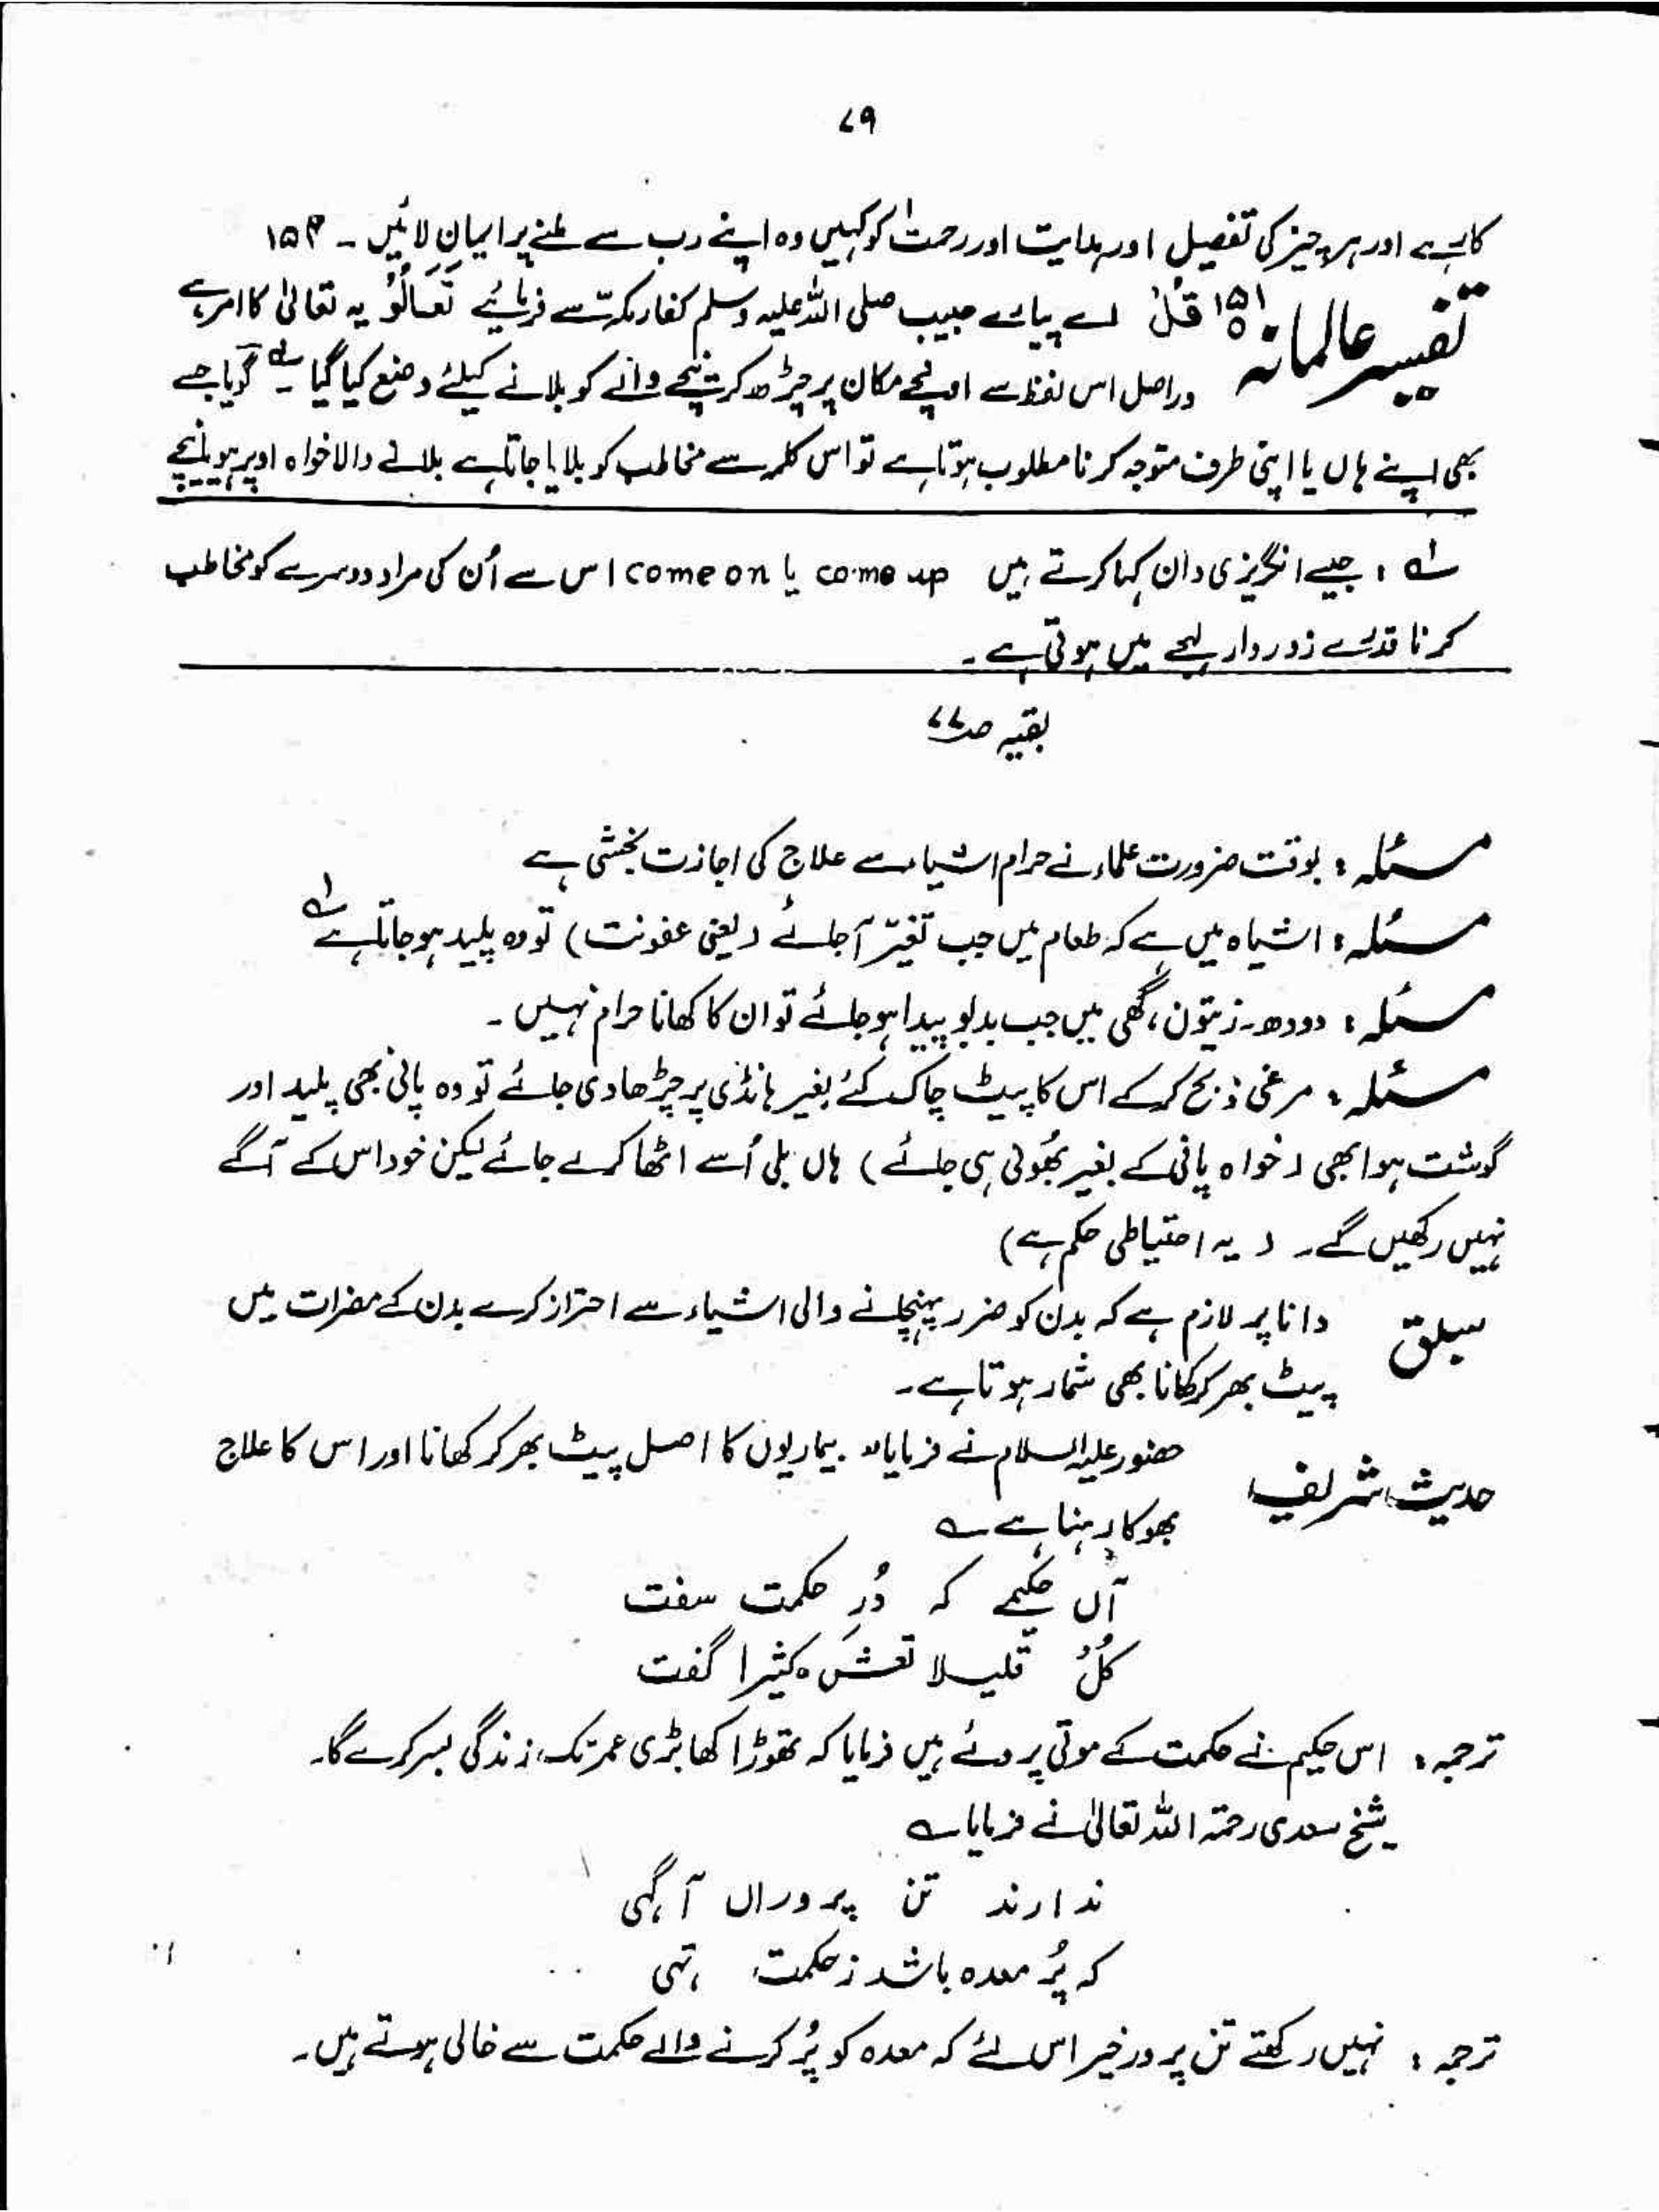 ۷۹
کا ہے اور ہر چیز کی تفصیل اور ہدایت اور رحمت کو کہیں وہ اپنے رب سے ملنے پر ایمان لائیں ۔ ۱۵۴
تفسیر عالمانہ ۱۵۱ قُلْ اے پیارے حبیب صلی اللہ علیہ وسلم کفار مکہ سے فرمائیے تَعَالَوْ یہ تعالیٰ کا امر ہے
دراصل اس لفظ سے اونچے مکان پر چڑھ کر نیچے والے کو بلانے کیلئے وضع کیا گیا ہے گویا جسے
بھی اپنے ہاں یا اپنی طرف متوجہ کرنا مطلوب ہوتا ہے تو اس کلمہ سے مخاطب کو بلایا جاتا ہے بلانے والا خواہ اوپر ہو یا نیچے
لہ ؛ جیسے انگریزی دان کہا کرتے ہیں come up یا come on اس سے اُن کی مراد دوسرے کو مخاطب
کرنا قدرے زوردار لہجے میں ہوتی ہے ۔
بقیہ صـ۷۷
مسئلہ ؛ بوقت ضرورت علماء نے حرام اشیاء سے علاج کی اجازت بخشی ہے
مسئلہ ؛ اشباہ میں ہے کہ طعام میں جب تغیّر آ جائے (یعنی عفونت) تو وہ پلید ہو جاتا ہے لہ
مسئلہ ؛ دودھ ۔ زیتون ، گھی میں جب بدبو پیدا ہو جائے تو ان کا کھانا حرام نہیں ۔
مسئلہ ؛ مرغی ذبح کر کے اس کا پیٹ چاک کئے بغیر ہانڈی پر چڑھا دی جائے تو وہ پانی بھی پلید اور
گوشت ہوا بھی (خواہ پانی کے بغیر بھُونی ہی جائے) ہاں بلی اُسے اٹھا کر لے جائے لیکن خود اس کے آگے
نہیں رکھیں گے ۔ (یہ احتیاطی حکم ہے)
سبق دانا پر لازم ہے کہ بدن کو ضرر پہنچانے والی اشیاء سے احتراز کرے بدن کے مضرات میں
پیٹ بھر کر کھانا بھی شمار ہوتا ہے ۔
حدیث شریف حضور علیہ السلام نے فرمایا " بیماریوں کا اصل پیٹ بھر کر کھانا اور اس کا علاج
بھوکا رہنا ہے ؎
آں حکیمے کہ دُرِ حکمت سفت
کُلْ قلیلا تعش کثیرا گفت
ترجمہ ؛ اس حکیم نے حکمت کے موتی پروئے ہیں فرمایا کہ تھوڑا کھا بڑی عمر تک زندگی بسر کرے گا ۔
شیخ سعدی رحمۃ اللہ تعالیٰ نے فرمایا ؎
ندارند تن پروراں آگہی
کہ پُر معدہ باشد ز حکمت تہی
ترجمہ ؛ نہیں رکھتے تن پرور خبر اس لئے کہ معدہ کو پُر کرنے والے حکمت سے خالی ہوتے ہیں ۔